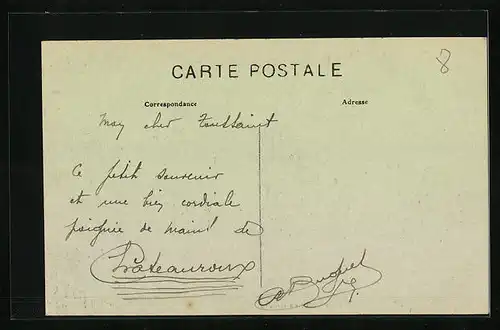 8
CARTE POSTALE
Correspondance
Adresse
Mon cher Toussaint
Ce petit souvenir
et une bien cordiale
poignée de main de
Châteauroux